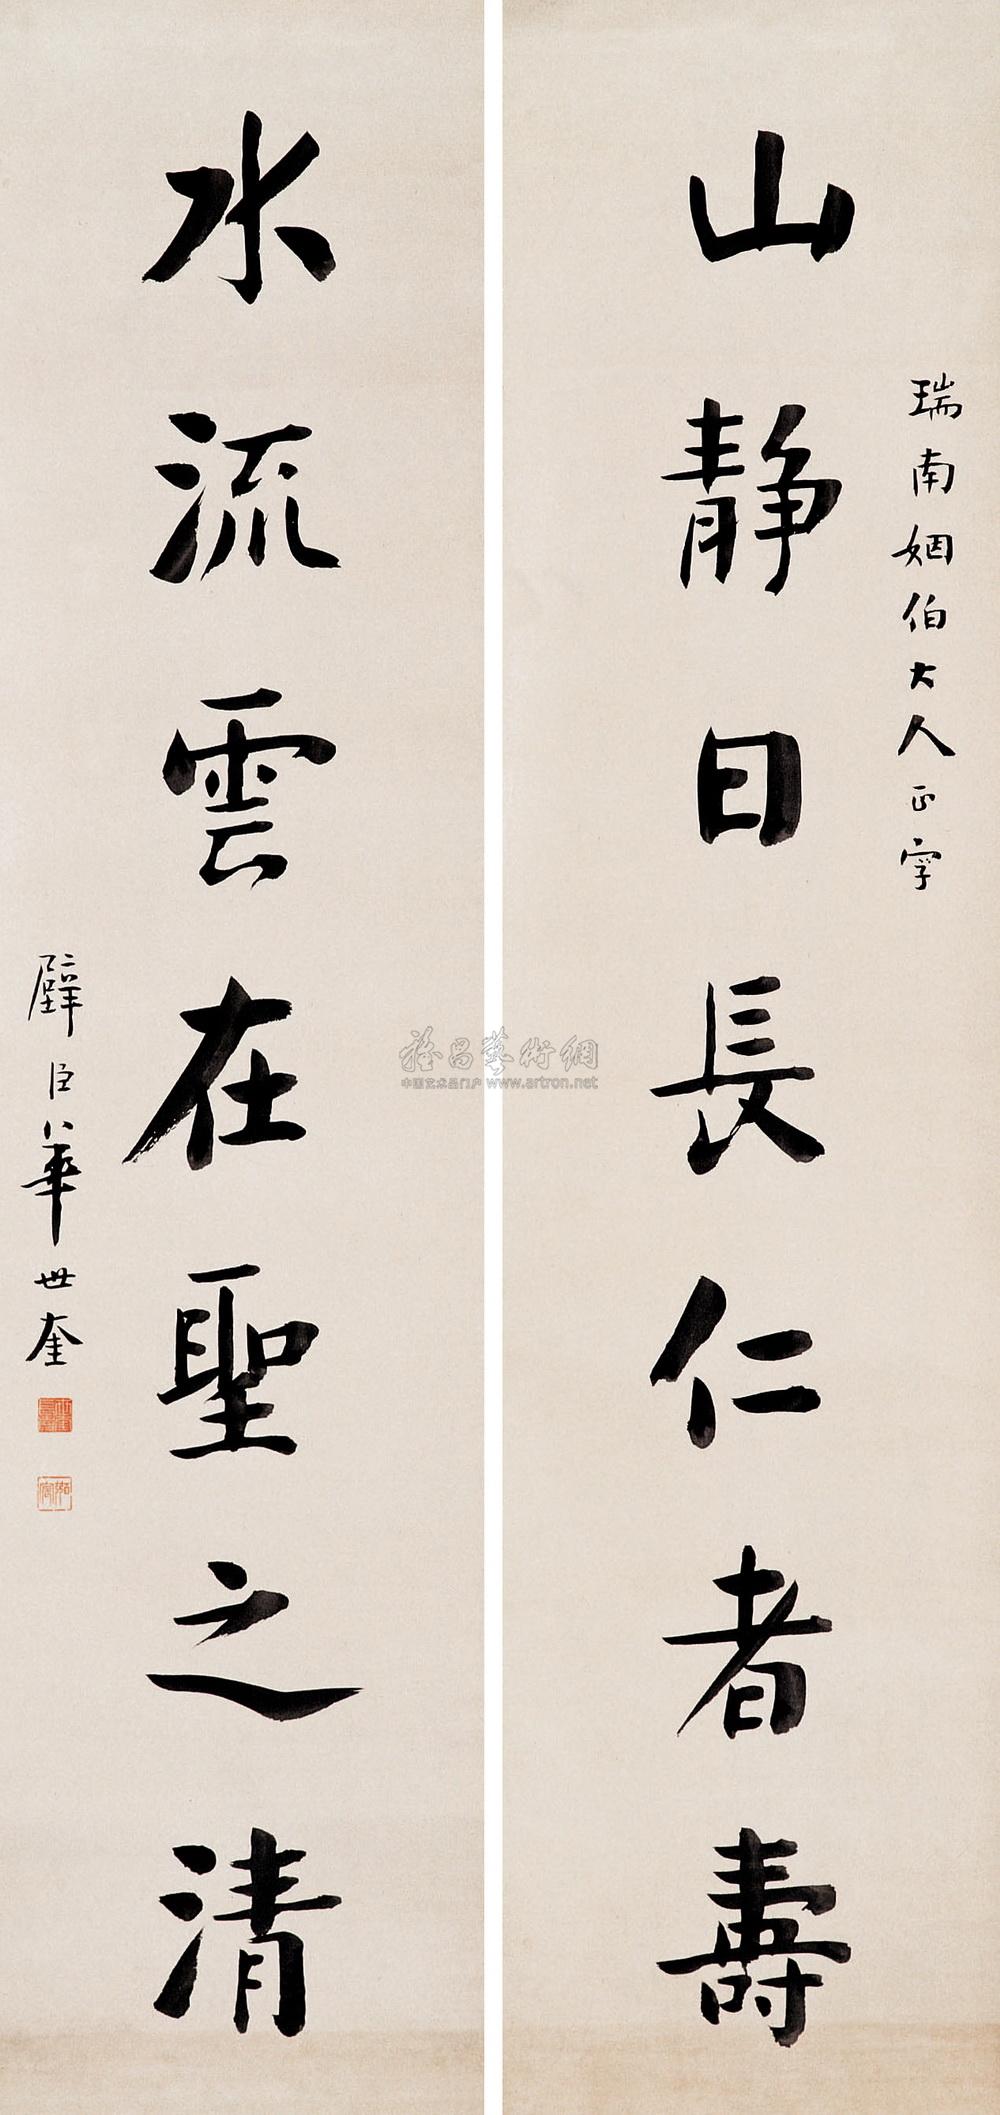 瑞南姻伯大人正字
山静日長仁者壽
水流雲在聖之清
璧臣華世奎
雅昌藝術網
中国艺术品门户 www.artron.net